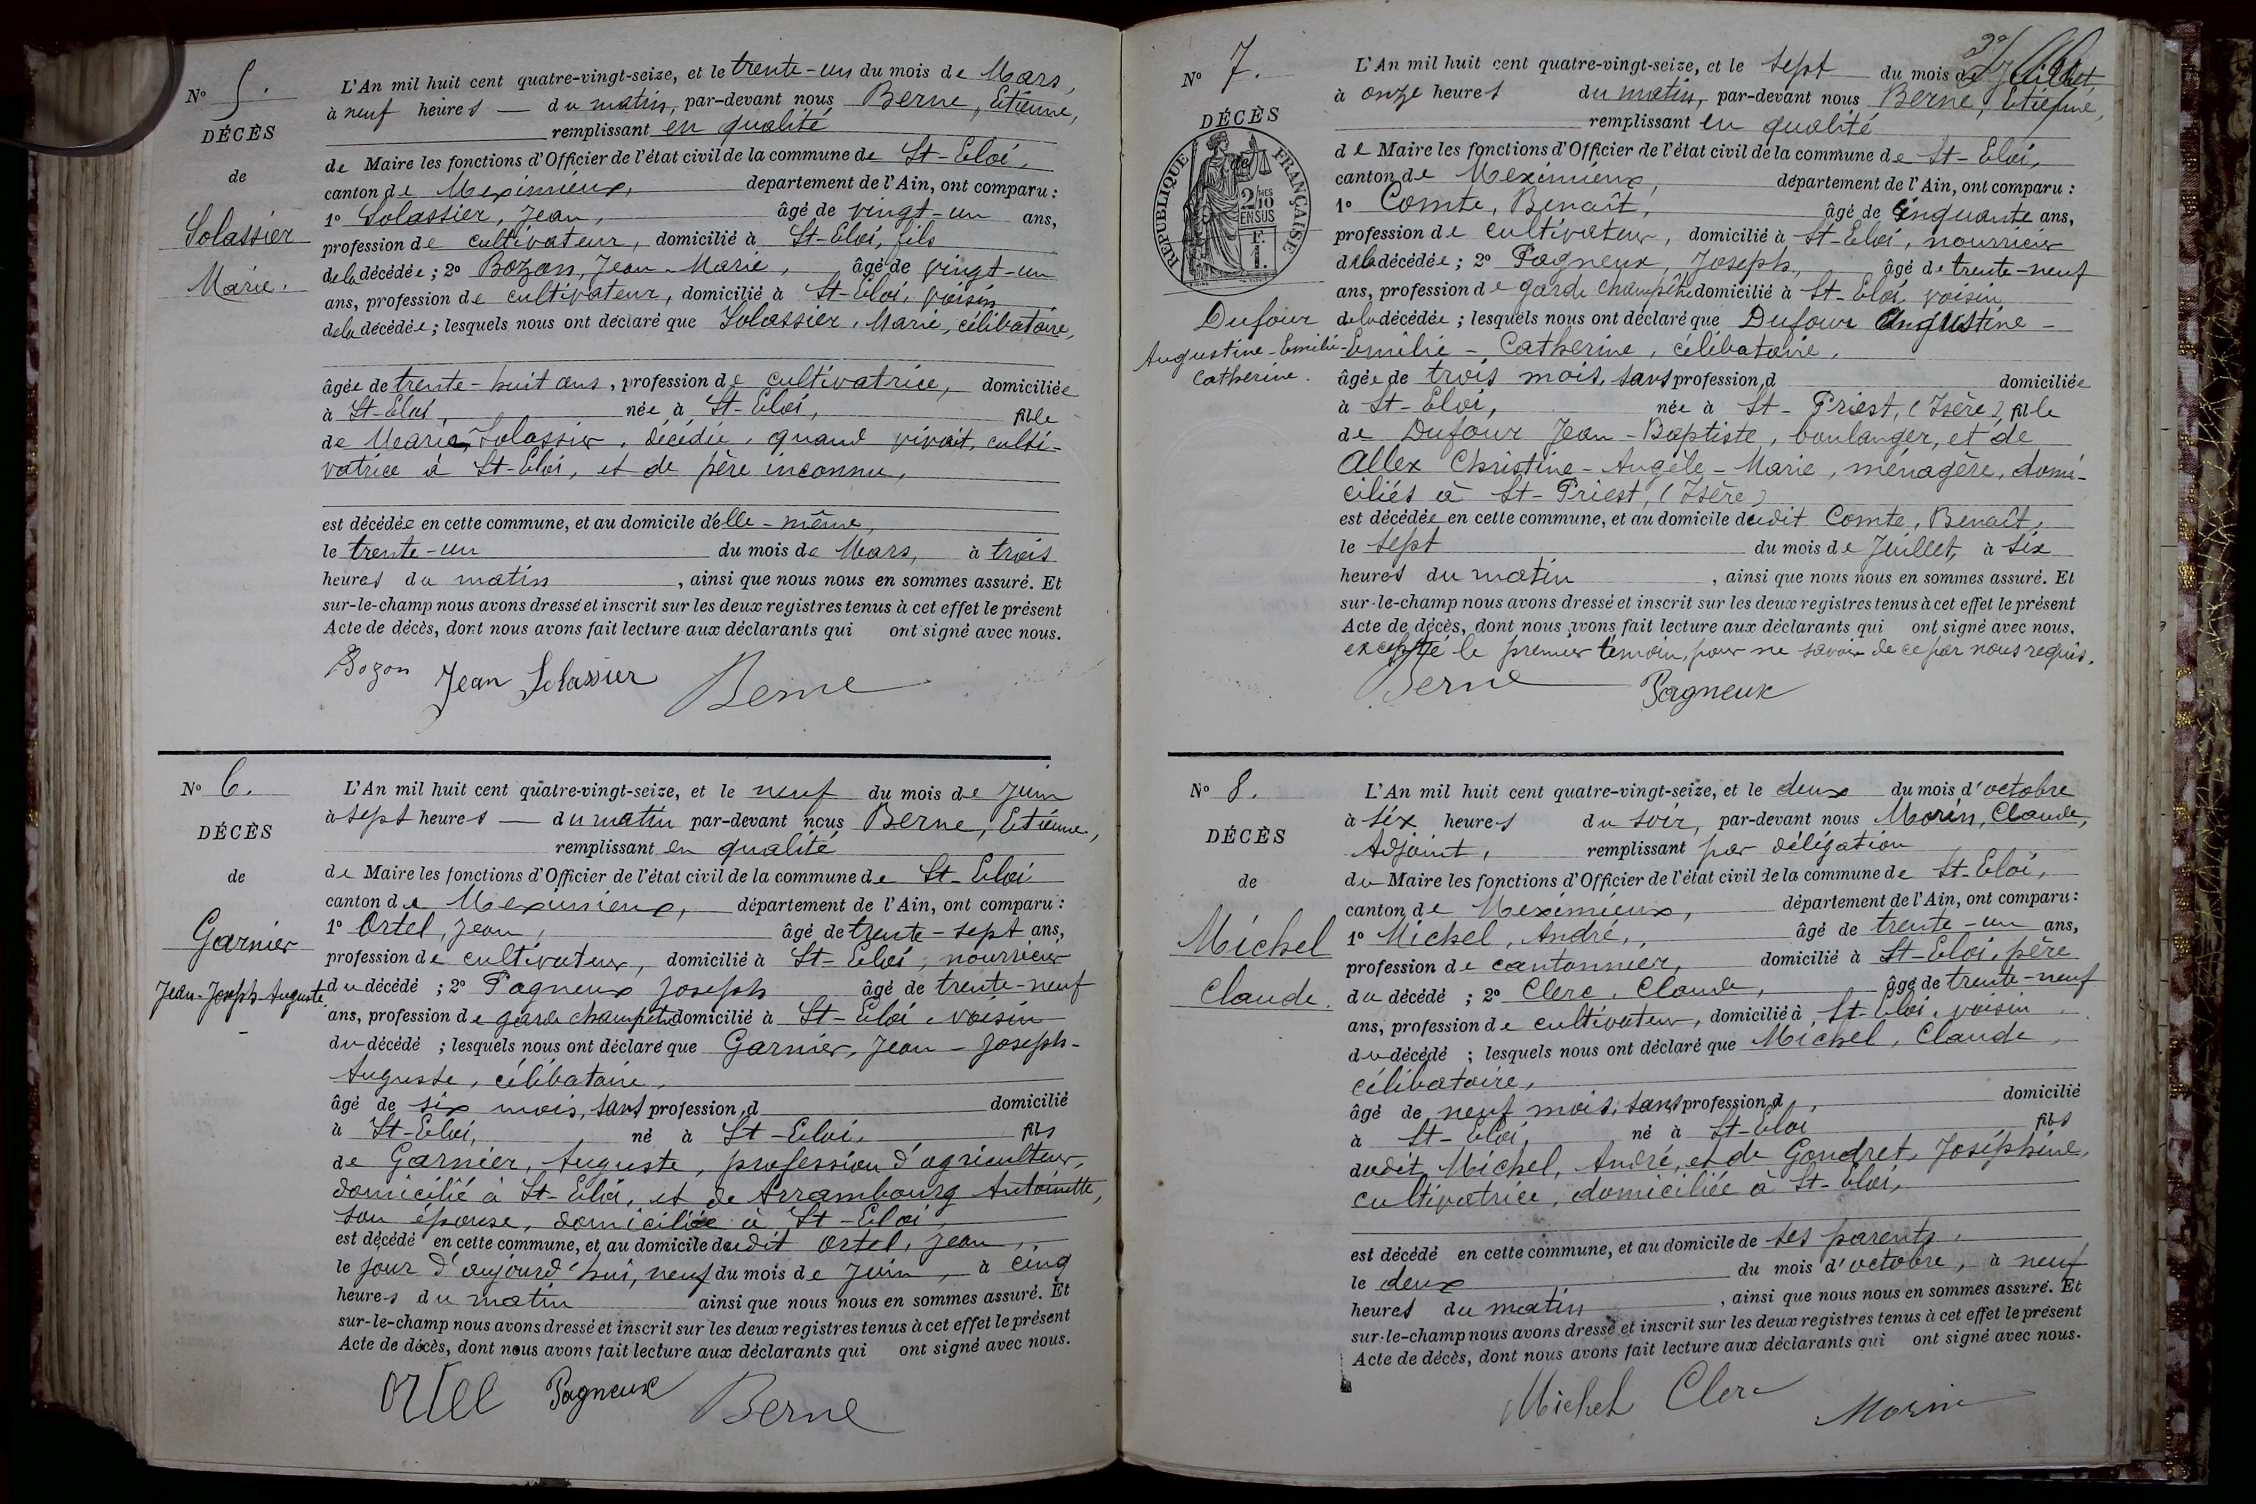 N° 5.
DÉCÈS
de
Solassier
Marie.
L'An mil huit cent quatre-vingt-seize, et le trente-un du mois de Mars,
à neuf heures du matin, par-devant nous Berne, Etienne,
remplissant en qualité
de Maire les fonctions d'Officier de l'état civil de la commune de St-Eloi,
canton de Meximieux, département de l'Ain, ont comparu :
1° Solassier, Jean, âgé de vingt-un ans,
profession de cultivateur, domicilié à St-Eloi, fils
de la décédée ; 2° Bozon, Jean-Marie, âgé de vingt-un
ans, profession de cultivateur, domicilié à St-Eloi, voisin
de la décédée ; lesquels nous ont déclaré que Solassier, Marie, célibataire,
âgée de trente-huit ans, profession de cultivatrice, domiciliée
à St-Eloi, née à St-Eloi, fille
de Marie Solassier, décédée, quand vivait, culti-
vatrice à St-Eloi, et de père inconnu,
est décédée en cette commune, et au domicile d'elle-même,
le trente-un du mois de Mars, à trois
heures du matin, ainsi que nous nous en sommes assuré. Et
sur-le-champ nous avons dressé et inscrit sur les deux registres tenus à cet effet le présent
Acte de décès, dont nous avons fait lecture aux déclarants qui ont signé avec nous.
Bozon Jean Solassier Berne
N° 6.
DÉCÈS
de
Garnier
Jean-Joseph-Auguste
L'An mil huit cent quatre-vingt-seize, et le neuf du mois de Juin
à sept heures du matin par-devant nous Berne, Etienne,
remplissant en qualité
de Maire les fonctions d'Officier de l'état civil de la commune de St-Eloi
canton de Meximieux, département de l'Ain, ont comparu :
1° Ortel, Jean, âgé de trente-sept ans,
profession de cultivateur, domicilié à St-Eloi, nourricier
du décédé ; 2° Pagneux Joseph âgé de trente-neuf
ans, profession de garde champêtre domicilié à St-Eloi, voisin
du décédé ; lesquels nous ont déclaré que Garnier, Jean-Joseph-
Auguste, célibataire,
âgé de six mois, sans profession, d domicilié
à St-Eloi, né à St-Eloi, fils
de Garnier, Auguste, profession d'agriculteur,
domicilié à St-Eloi, et de Arrambourg Antoinette,
son épouse, domiciliée à St-Eloi,
est décédé en cette commune, et au domicile dudit Ortel, Jean,
le jour d'aujourd'hui, neuf du mois de Juin, à cinq
heures du matin ainsi que nous nous en sommes assuré. Et
sur-le-champ nous avons dressé et inscrit sur les deux registres tenus à cet effet le présent
Acte de décès, dont nous avons fait lecture aux déclarants qui ont signé avec nous.
Ortel Pagneux Berne
N° 7.
DÉCÈS
de
RÉPUBLIQUE FRANÇAISE
2/10 EN SUS
F. 1.
Dufour
Augustine-Emilie-
Catherine.
L'An mil huit cent quatre-vingt-seize, et le sept du mois de Juillet
à onze heures du matin, par-devant nous Berne, Etienne,
remplissant en qualité
de Maire les fonctions d'Officier de l'état civil de la commune de St-Eloi,
canton de Meximieux, département de l'Ain, ont comparu :
1° Comte, Benoît, âgé de cinquante ans,
profession de cultivateur, domicilié à St-Eloi, nourricier
de la décédée ; 2° Pagneux Joseph, âgé de trente-neuf
ans, profession de garde champêtre domicilié à St-Eloi, voisin
de la décédée ; lesquels nous ont déclaré que Dufour Augustine-
Emilie-Catherine, célibataire,
âgée de trois mois, sans profession, d domiciliée
à St-Eloi, née à St-Priest, (Isère) fille
de Dufour Jean-Baptiste, boulanger, et de
Allex Christine-Angèle-Marie, ménagère, domi-
ciliés à St-Priest, (Isère)
est décédée en cette commune, et au domicile dudit Comte, Benoît,
le sept du mois de Juillet, à six
heures du matin, ainsi que nous nous en sommes assuré. Et
sur-le-champ nous avons dressé et inscrit sur les deux registres tenus à cet effet le présent
Acte de décès, dont nous avons fait lecture aux déclarants qui ont signé avec nous,
excepté le premier témoin, pour ne savoir de ce par nous requis.
Berne Pagneux
N° 8.
DÉCÈS
de
Michel
Claude.
L'An mil huit cent quatre-vingt-seize, et le deux du mois d'octobre
à six heures du soir, par-devant nous Morin, Claude,
Adjoint, remplissant par délégation
du Maire les fonctions d'Officier de l'état civil de la commune de St-Eloi,
canton de Meximieux, département de l'Ain, ont comparu :
1° Michel, André, âgé de trente-un ans,
profession de cantonnier, domicilié à St-Eloi, père
du décédé ; 2° Clerc, Claude, âgé de trente-neuf
ans, profession de cultivateur, domicilié à St-Eloi, voisin
du décédé ; lesquels nous ont déclaré que Michel, Claude,
célibataire,
âgé de neuf mois, sans profession, d domicilié
à St-Eloi, né à St-Eloi fils
dudit Michel, André, et de Gondret, Joséphine,
cultivatrice, domiciliée à St-Eloi,
est décédé en cette commune, et au domicile de ses parents,
le deux du mois d'octobre, à neuf
heures du matin, ainsi que nous nous en sommes assuré. Et
sur-le-champ nous avons dressé et inscrit sur les deux registres tenus à cet effet le présent
Acte de décès, dont nous avons fait lecture aux déclarants qui ont signé avec nous.
Michel Clerc Morin